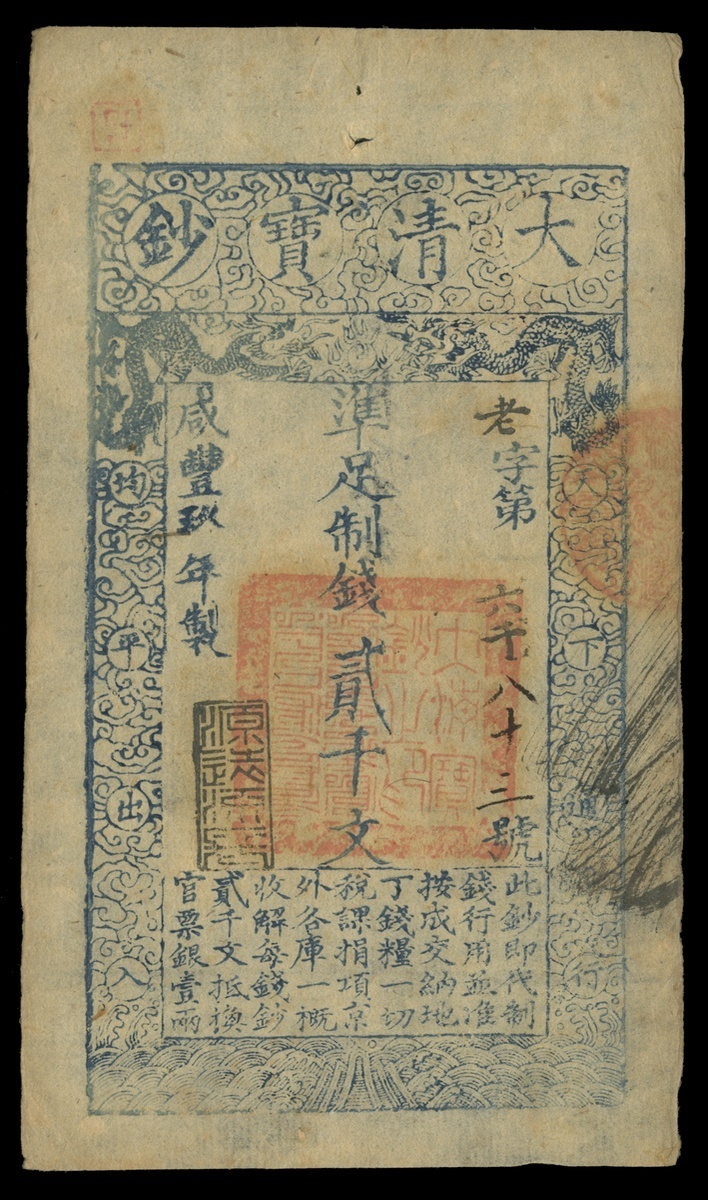 大清寶鈔
天下通行
均平出入
老字第六千八十三號
準足制錢貳千文
咸豐玖年製
此鈔即代制
錢行用並准
按成交納地
丁錢糧一切
稅課捐項京
外各庫一概
收解每錢鈔
貳千文抵換
官票銀壹兩